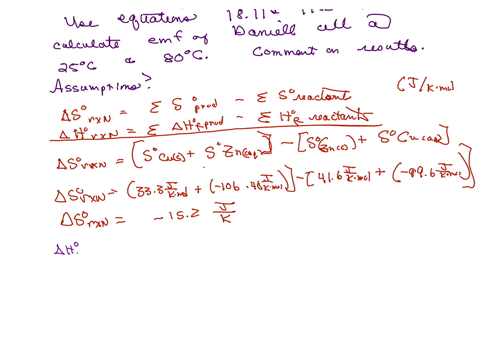 Use equations 18.11
calculate emf of Daniell cell @
25°C & 80°C. Comment on results.
Assumptions?
(J/K·mol)
ΔS°rxn = Σ S°prod − Σ S°reactant
ΔH°rxn = Σ ΔH°f prod − Σ H°f reactants
ΔS°rxn = [S°Cu(s) + S°Zn(aq)] − [S°Zn(s) + S°Cu(aq)]
ΔS°rxn = (33.3 J/K·mol + (−106.48 J/K·mol)] − [41.6 J/K·mol + (−99.6 J/K·mol)]
ΔS°rxn = −15.2 J/K
ΔH°